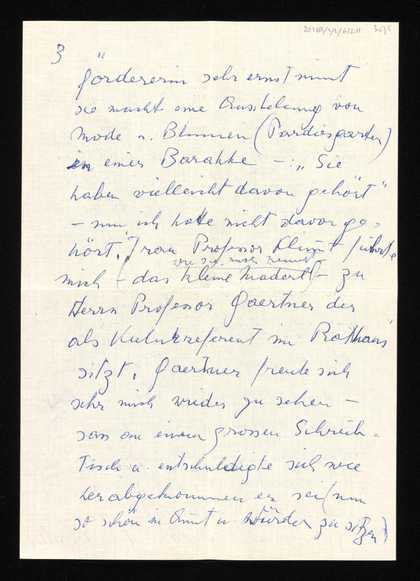 3 "
fördererin sehr ernst nimt
sie macht eine Ausstellung von
Mode u. Blumen (Pardiesgarten)
in einer Barakke – : „Sie
haben vielleicht davon gehört"
– nun ich hatte nicht davon ge-
hört. Frau Professor Klimt führte
wie sie mich nennt
mich – das kleine Maderl – zu
Herrn Professor Gaertner der
als Kulturreferent im Rathaus
sitzt, Gaertner freute sich
sehr mich wieder zu sehen –
sass an einem grossen Schreib-
Tisch u. entschuldigte sich wie
herabgekommen er sei (nun
so schön in Amt u. Würden zu sitzen)